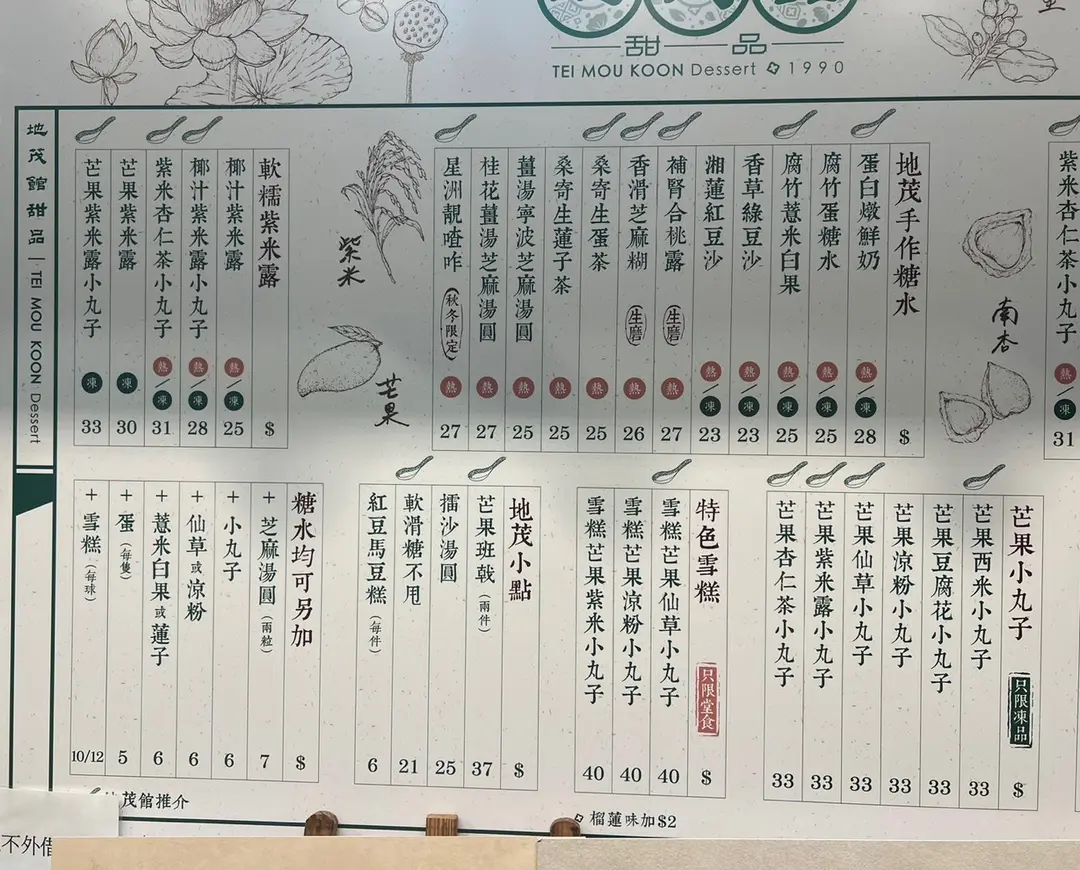 甜品
TEI MOU KOON Dessert 1990
紫米杏仁茶小丸子 熱/凍 31
南杏
地茂手作糖水 $
蛋白燉鮮奶 熱/凍 28
腐竹蛋糖水 熱/凍 25
腐竹薏米白果 熱/凍 25
香草綠豆沙 熱/凍 23
湘蓮紅豆沙 熱/凍 23
補腎合桃露 (生磨) 熱 27
香滑芝麻糊 (生磨) 熱 26
桑寄生蛋茶 熱 25
桑寄生蓮子茶 熱 25
薑湯寧波芝麻湯圓 熱 25
桂花薑湯芝麻湯圓 熱 27
星洲靚喳咋 (秋冬限定) 熱 27
紫米
芒果
軟糯紫米露 $
椰汁紫米露 熱/凍 25
椰汁紫米露小丸子 熱/凍 28
紫米杏仁茶小丸子 熱/凍 31
芒果紫米露 凍 30
芒果紫米露小丸子 凍 33
地茂館甜品 | TEI MOU KOON Dessert
芒果小丸子 只限凍品 $
芒果西米小丸子 33
芒果豆腐花小丸子 33
芒果涼粉小丸子 33
芒果仙草小丸子 33
芒果紫米露小丸子 33
芒果杏仁茶小丸子 33
特色雪糕 只限堂食 $
雪糕芒果仙草小丸子 40
雪糕芒果涼粉小丸子 40
雪糕芒果紫米小丸子 40
地茂小點 $
芒果班戟 (兩件) 37
擂沙湯圓 25
軟滑糖不甩 21
紅豆馬豆糕 (每件) 6
糖水均可另加 $
+芝麻湯圓 (兩粒) 7
+小丸子 6
+仙草或涼粉 6
+薏米白果或蓮子 6
+蛋 (每隻) 5
+雪糕 (每球) 10/12
地茂館推介
榴蓮味加$2
不外借